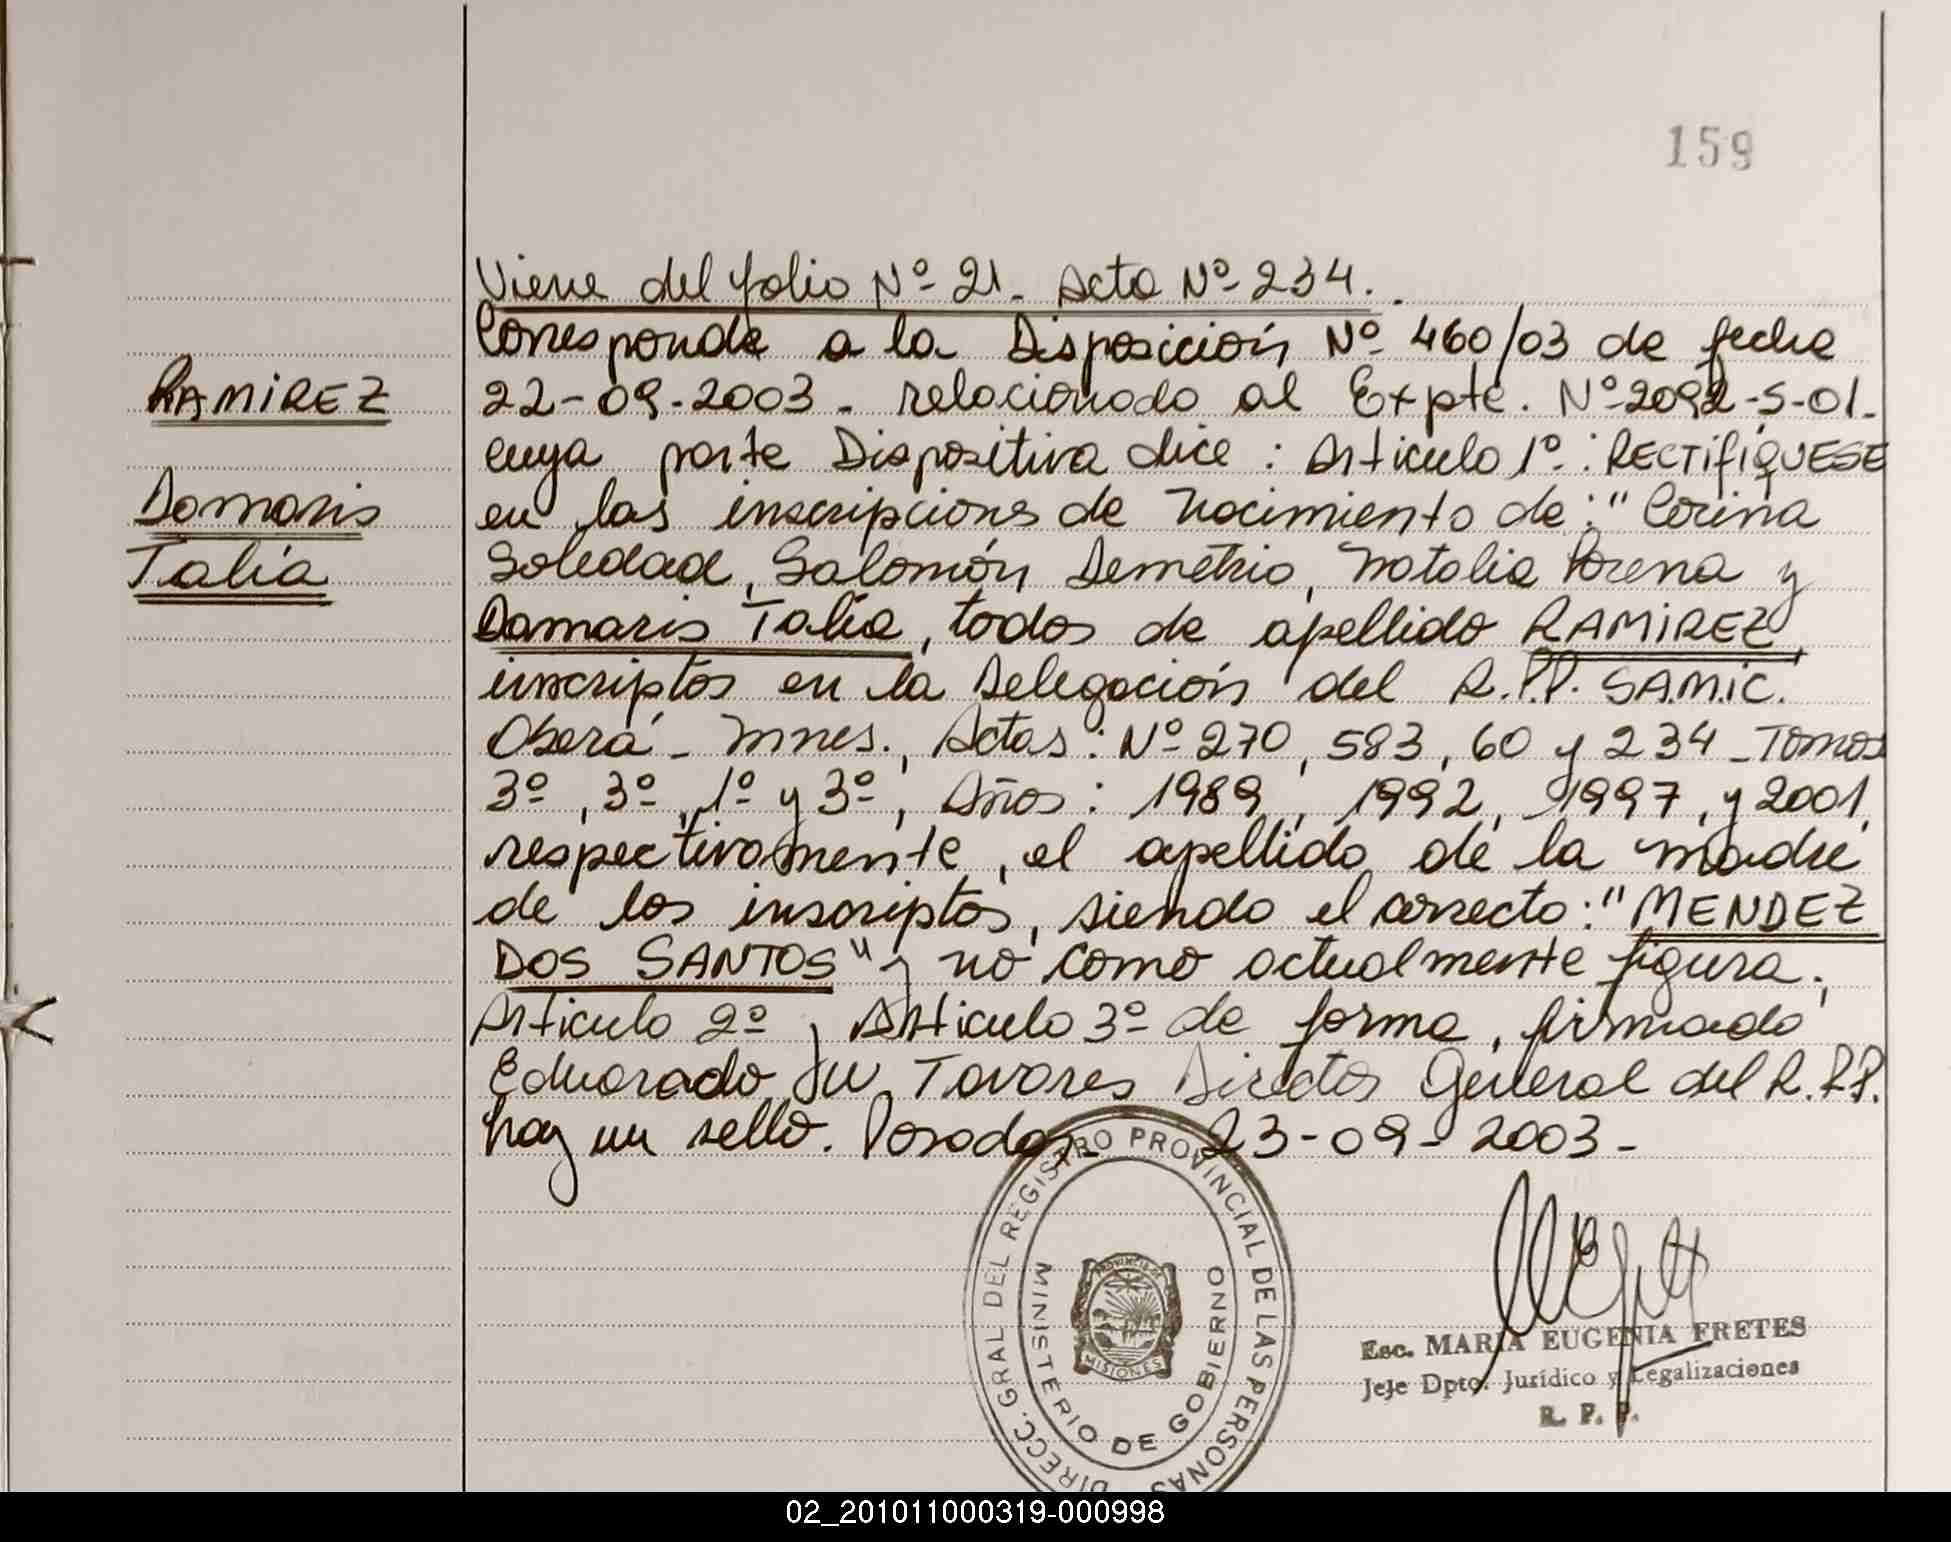 159
Viene del folio Nº 21. Acta Nº 234.
Corresponde a la Disposición Nº 460/03 de fecha
RAMIREZ
22-09-2003. relacionado al Expte. Nº 2092-S-01.
cuya parte Dispositiva dice: Articulo 1º: RECTIFIQUESE
Damaris
en las inscripciones de nacimiento de: "Corina
Talía
Soledad, Salomón Demetrio, Natalia Lorena y
Damaris Talía, todos de apellido RAMIREZ,
inscriptos en la Delegación del R.P.P. SA.M.I.C.
Oberá - Mnes., Actas: Nº 270, 583, 60 y 234 - Tomos
3º, 3º, 1º y 3º, Años: 1989, 1992, 1997, y 2001,
respectivamente, el apellido de la madre
de los inscriptos, siendo el correcto: "MENDEZ
DOS SANTOS" y no como actualmente figura.
Articulo 2º, Articulo 3º de forma, firmado
Eduorado Tavares Director General del R.P.P.
hay un sello. Posadas. 23-09-2003-
DIRECC. GRAL DEL REGISTRO PROVINCIAL DE LAS PERSONAS
MINISTERIO DE GOBIERNO
PROVINCIA DE
MISIONES
Esc. MARIA EUGENIA FRETES
Jefe Dpto. Jurídico y Legalizaciones
R. P. P.
02_201011000319-000998